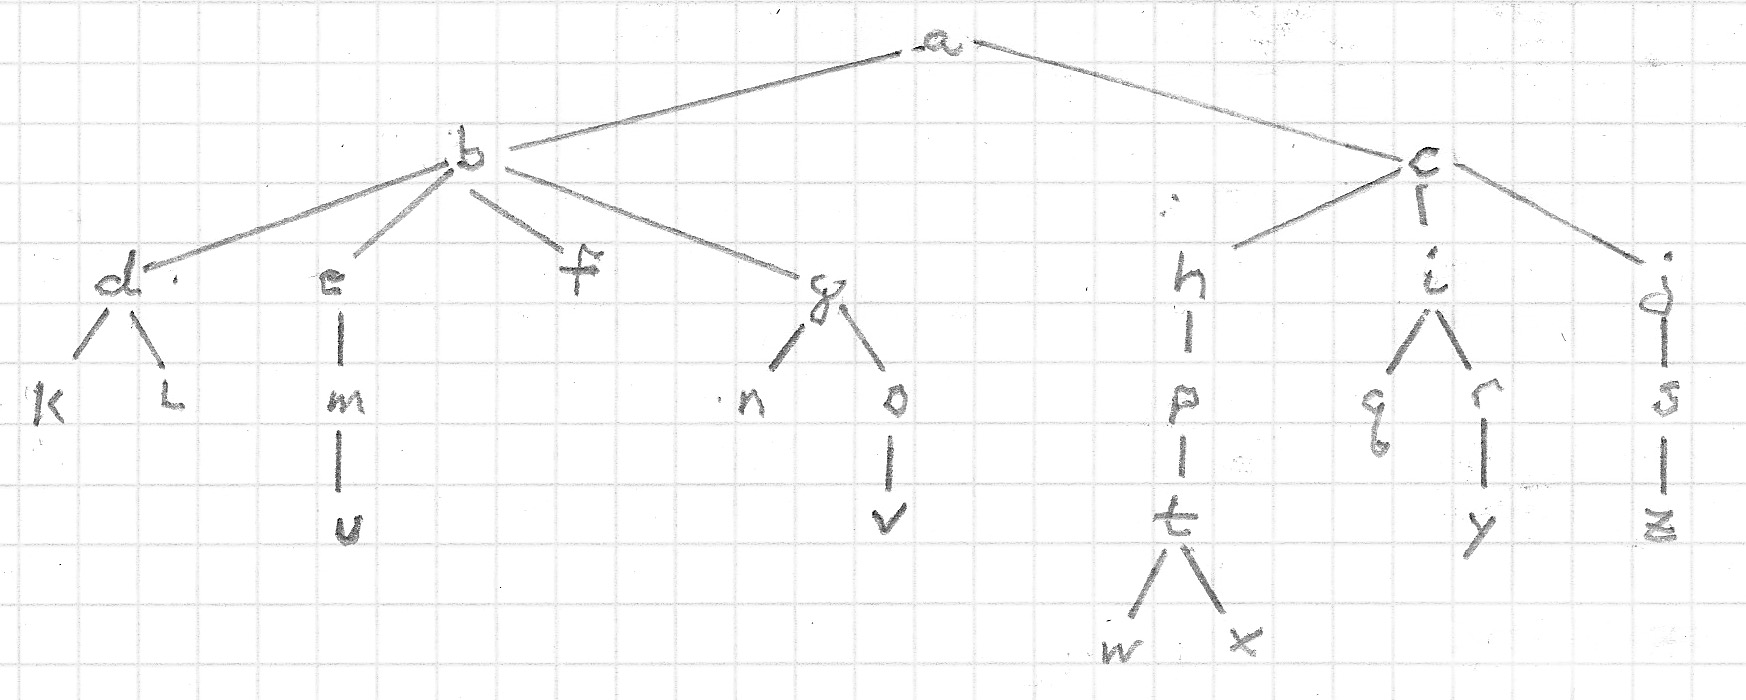 a
b c
d e f g h i j
K L m n o p q r s
u v t y z
w x